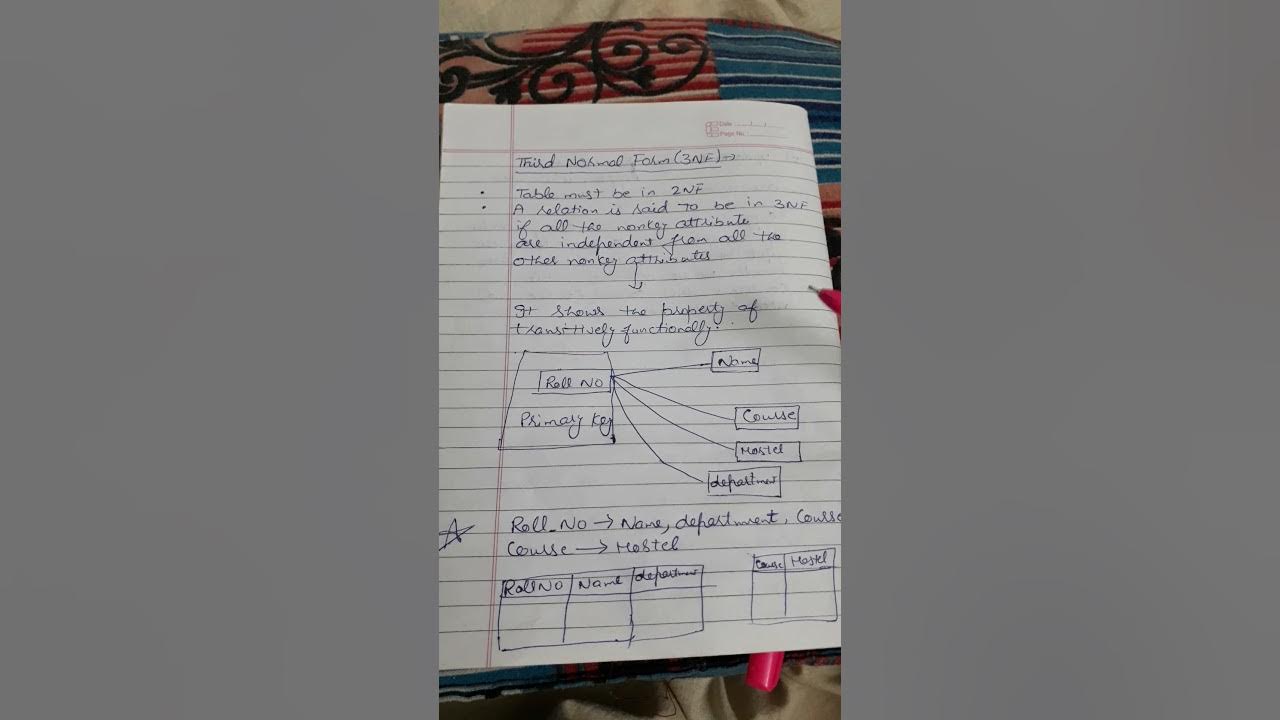 Date
Page No.
Third Normal Form (3NF) →
• Table must be in 2NF
• A relation is said to be in 3NF
if all the nonkey attribute
are independent from all the
other nonkey attributes
It shows the property of
transitively functionally:
Name
Roll No
Course
Primary Key
Hostel
department
Roll_No → Name, department, Course
Course → Hostel
RollNo Name department
Course Hostel